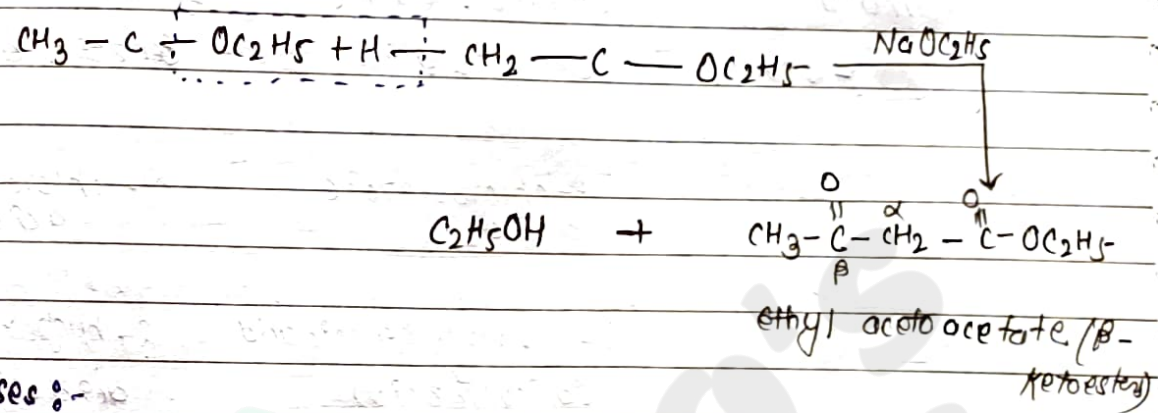 CH3 – C – OC2H5 + H – CH2 — C — OC2H5
NaOC2H5
O α O
C2H5OH + CH3 – C – CH2 – C – OC2H5
β
ethyl acetoacetate (β-
ketoester)
ses :-